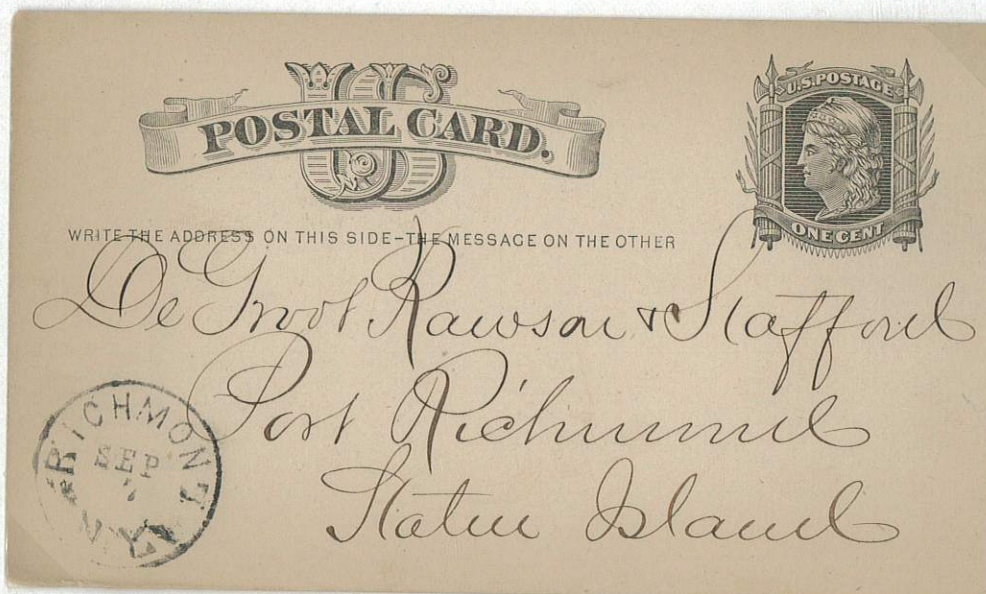 US
POSTAL CARD.
U.S. POSTAGE
ONE CENT
WRITE THE ADDRESS ON THIS SIDE–THE MESSAGE ON THE OTHER
De Groot Rawson & Stafford
Port Richmond
Staten Island
RICHMOND
SEP
7
N.Y.